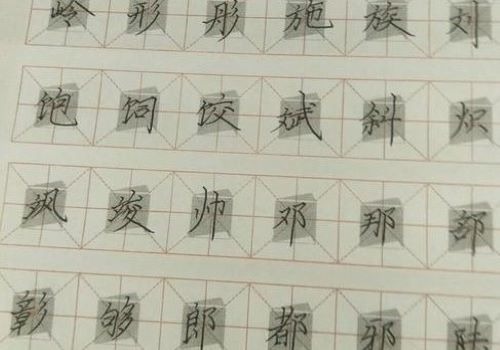 岭形彤施族刘
饱饲饺斌斜炽
飒竣帅邓那部
彰够郎都邪